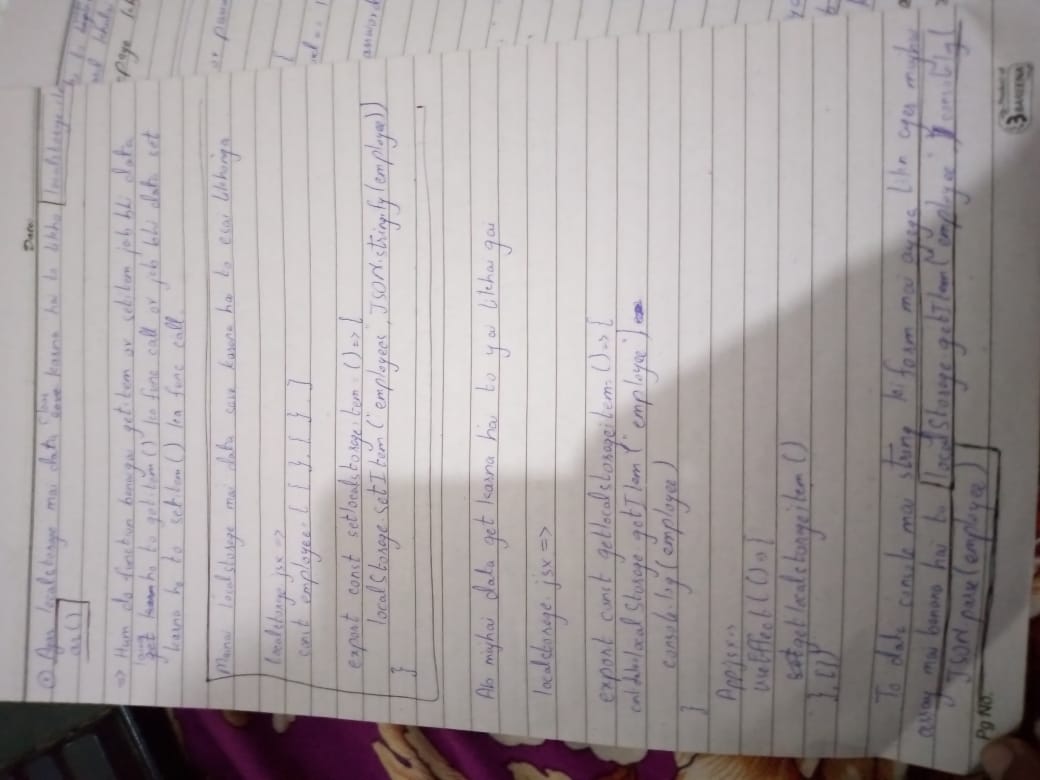 Date:
① Agar localstorage mai data save karna hai to likho localstorage.cle
ar()
=> Hum do function banaygai getitem or setitem jab bhi data
get karna ho to getitem() ko func call or jab bhi data set
karna ho to setitem() ka func call.
Mainai localstorage mai data save karana ha to esai likhunga
localstorage.jsx =>
const employee = [ { }, { }, { } ]
export const setlocalstorageitem = () => {
localStorage.setItem("employees", JSON.stringify(employee))
}
Ab mujhai data get karna hai to yu likhai gai
localstorage.jsx =>
export const getlocalstorageitem = () => {
const data = localStorage.getItem("employee")
console.log(employee)
}
App.jsx =>
useEffect(() => {
getlocalstorageitem()
}, [])
To data console mai string ki form mai ayega likn ager mujhai
array mai banana hai to localStorage.getItem("employee")
JSON.parse(employee)
Pg No.
3